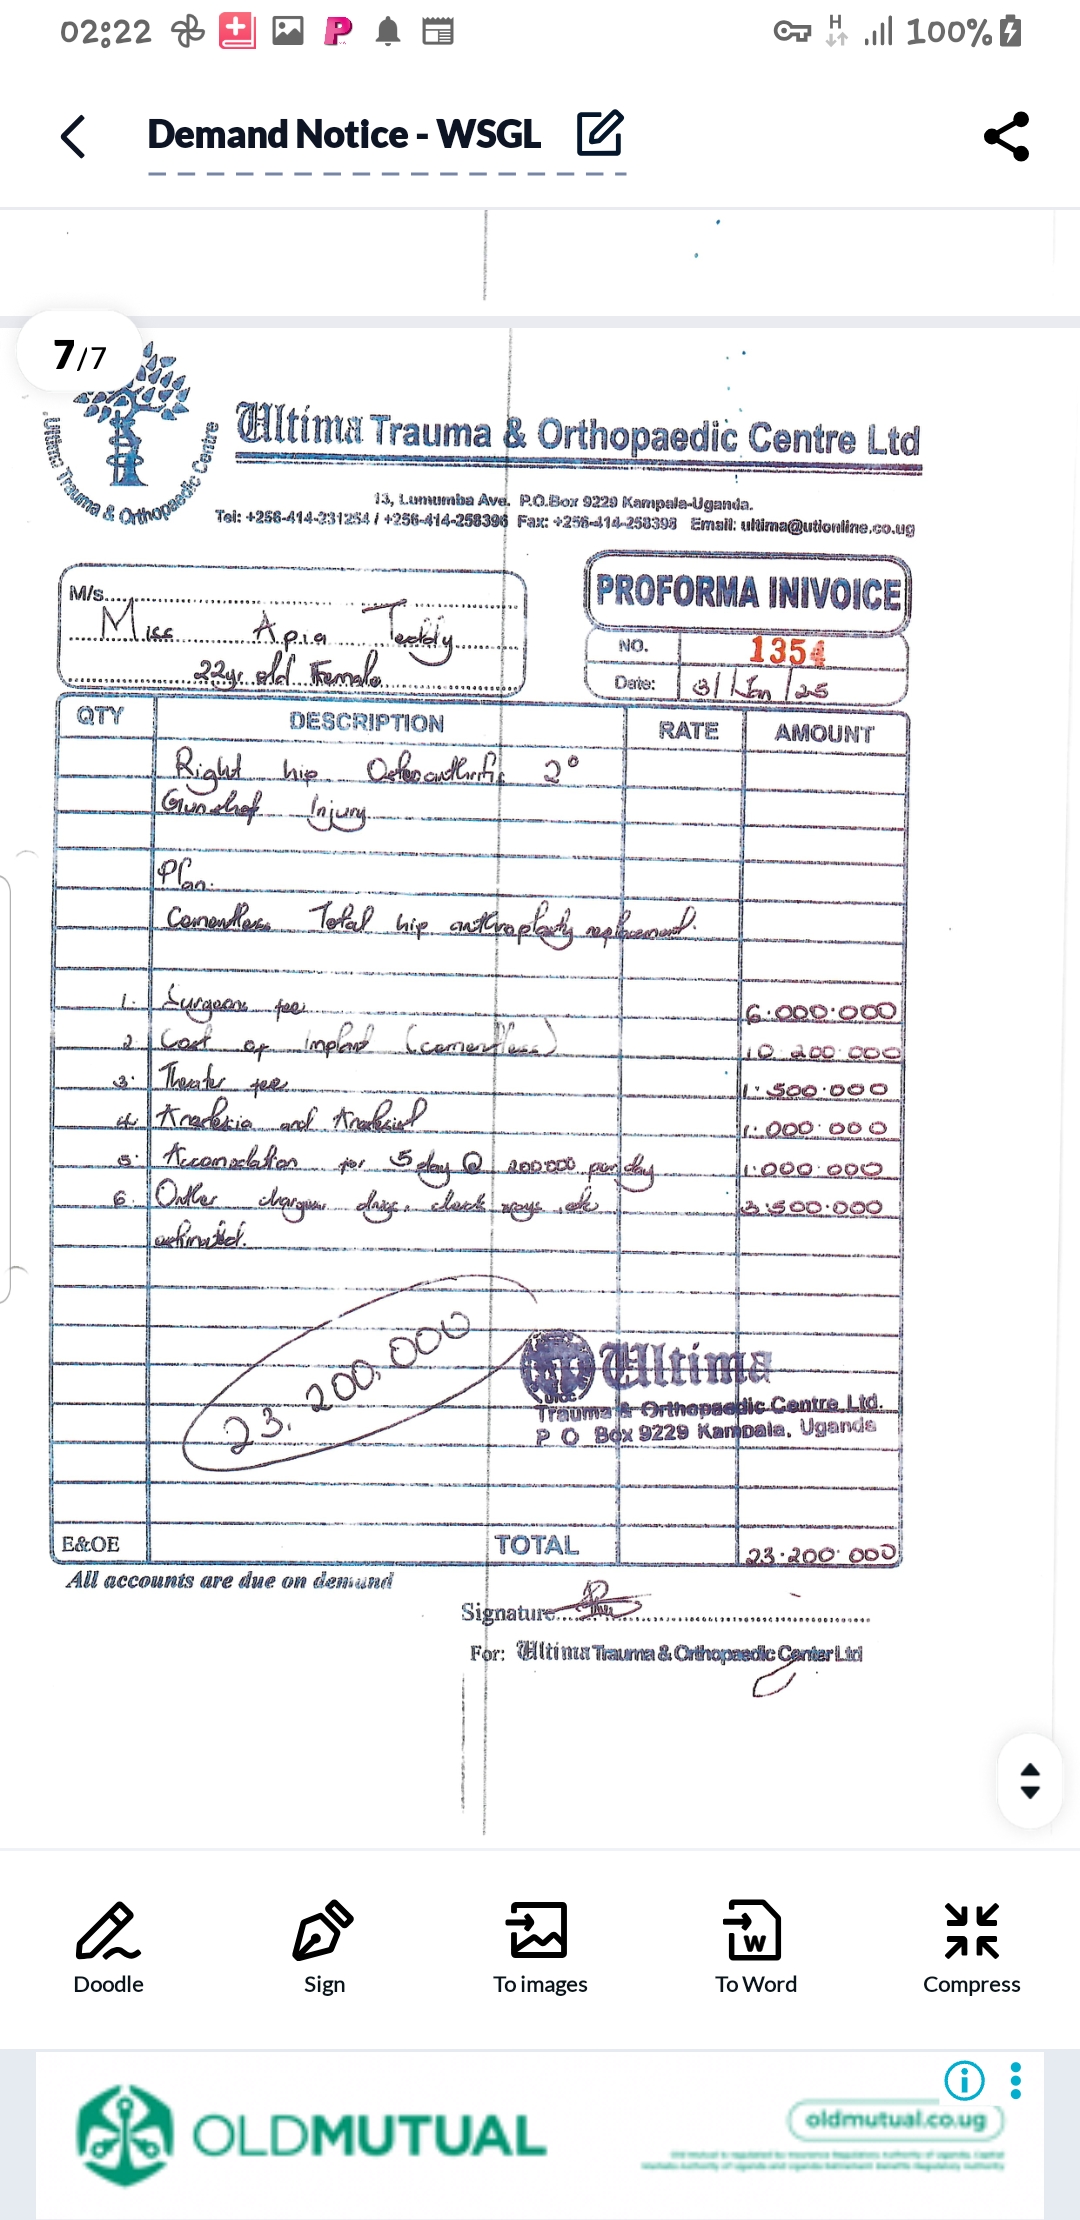 02:22 H 100%
Demand Notice - WSGL
7/7
Ultima Trauma & Orthopaedic Centre
Ultima Trauma & Orthopaedic Centre Ltd
13, Lumumba Ave. P.O.Box 9229 Kampala-Uganda.
Tel: +256-414-231254 / +256-414-258396 Fax: +256-414-258398 Email: ultima@utionline.co.ug
M/s
Miss Apia Teddy
22yr old Female
PROFORMA INIVOICE
NO. 1354
Date: 31/Jan/25
QTY DESCRIPTION RATE AMOUNT
Right hip Osteoarthritis 2°
Gunshot Injury
Plan.
Cementless Total hip arthroplasty replacement.
1. Surgeons fee 6.000.000
2. Cost of Implant (cementless) 10.200.000
3. Theater fee 1.500.000
4. and 1.000.000
5. Accomodation for 5 day @ 200000 per day 1.000.000
6. Other charges drugs, xrays, etc 3.500.000
estimated.
23.200,000
Ultima
Trauma & Orthopaedic Centre Ltd.
P O Box 9229 Kampala, Uganda
E&OE TOTAL 23.200.000
All accounts are due on demand
Signature
For: Ultima Trauma & Orthopaedic Center Ltd
Doodle Sign To images To Word Compress
OLDMUTUAL
oldmutual.co.ug